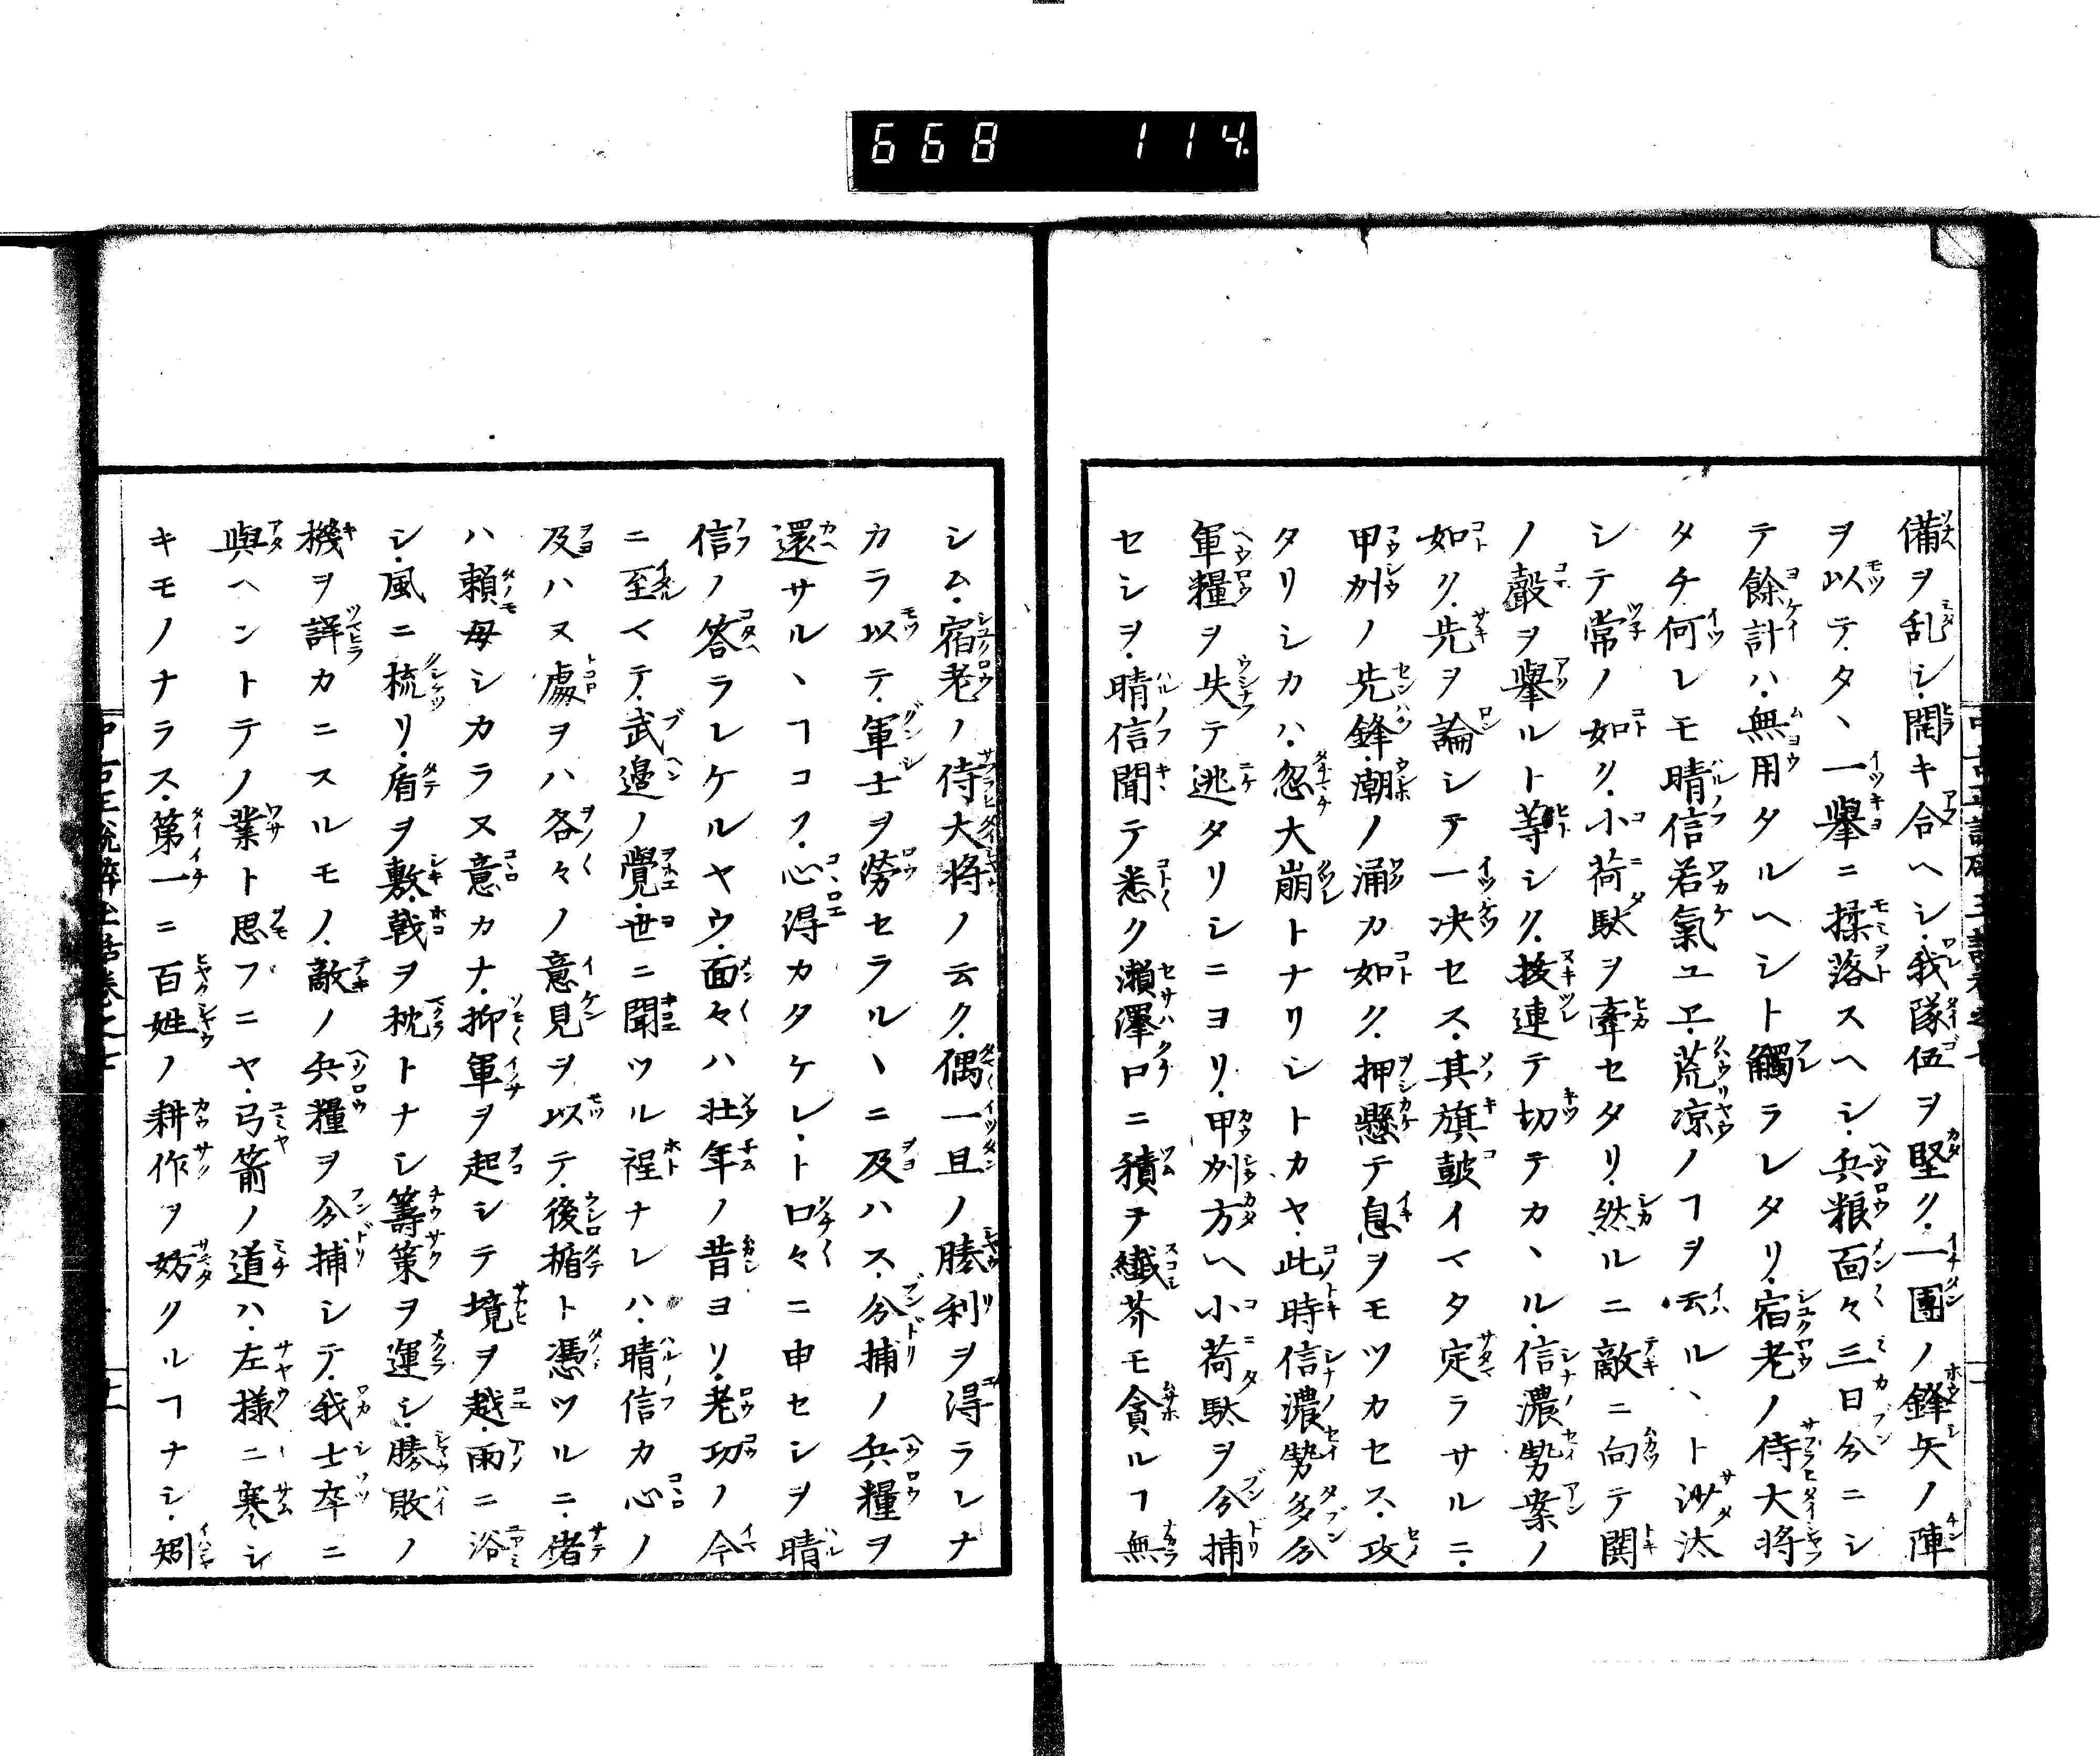 668 114
備ヲ乱シ開キ合ヘシ我隊伍ヲ堅ク一團ノ鋒矢ノ陣
ヲ以テタヽ一擧ニ揉落スヘシ兵粮面々三日分ニシ
テ餘計ハ無用タルヘシト觸ラレタリ宿老ノ侍大将
タチ何レモ晴信若氣ユヱ荒凉ノヿヲ云ルヽト沙汰
シテ常ノ如ク小荷駄ヲ牽セタリ然ルニ敵ニ向テ鬨
ノ聲ヲ擧ルト等シク拔連テ切テカヽル信濃勢案ノ
如ク先ヲ論シテ一决セス其旗鼓イマタ定ラサルニ
甲州ノ先鋒潮ノ涌カ如ク押懸テ息ヲモツカセス攻
タリシカハ忽大崩トナリシトカヤ此時信濃勢多分
軍糧ヲ失テ逃タリシニヨリ甲州方ヘ小荷駄ヲ分捕
セシヲ晴信聞テ悉ク瀬澤口ニ積テ纎芥モ貪ルヿ無
シム宿老ノ侍大将ノ云ク偶一旦ノ勝利ヲ得ラレナ
カラ以テ軍士ヲ勞セラルヽニ及ハス分捕ノ兵糧ヲ
還サルヽヿコソ心得カタケレト口々ニ申セシヲ晴
信ノ答ラレケルヤウ面々ハ壮年ノ昔ヨリ老功ノ今
ニ至マテ武邊ノ覺世ニ聞ツル程ナレハ晴信カ心ノ
及ハヌ處ヲハ各々ノ意見ヲ以テ後楯ト憑ツルニ偖
ハ頼母シカラヌ意カナ抑軍ヲ起シテ境ヲ越雨ニ浴
シ風ニ梳リ盾ヲ敷戟ヲ枕トナシ籌策ヲ運シ勝敗ノ
機ヲ詳カニスルモノ敵ノ兵糧ヲ分捕シテ我士卒ニ
與ヘントテノ業ト思フニヤ弓箭ノ道ハ左様ニ寒シ
キモノナラス第一ニ百姓ノ耕作ヲ妨クルヿナシ矧